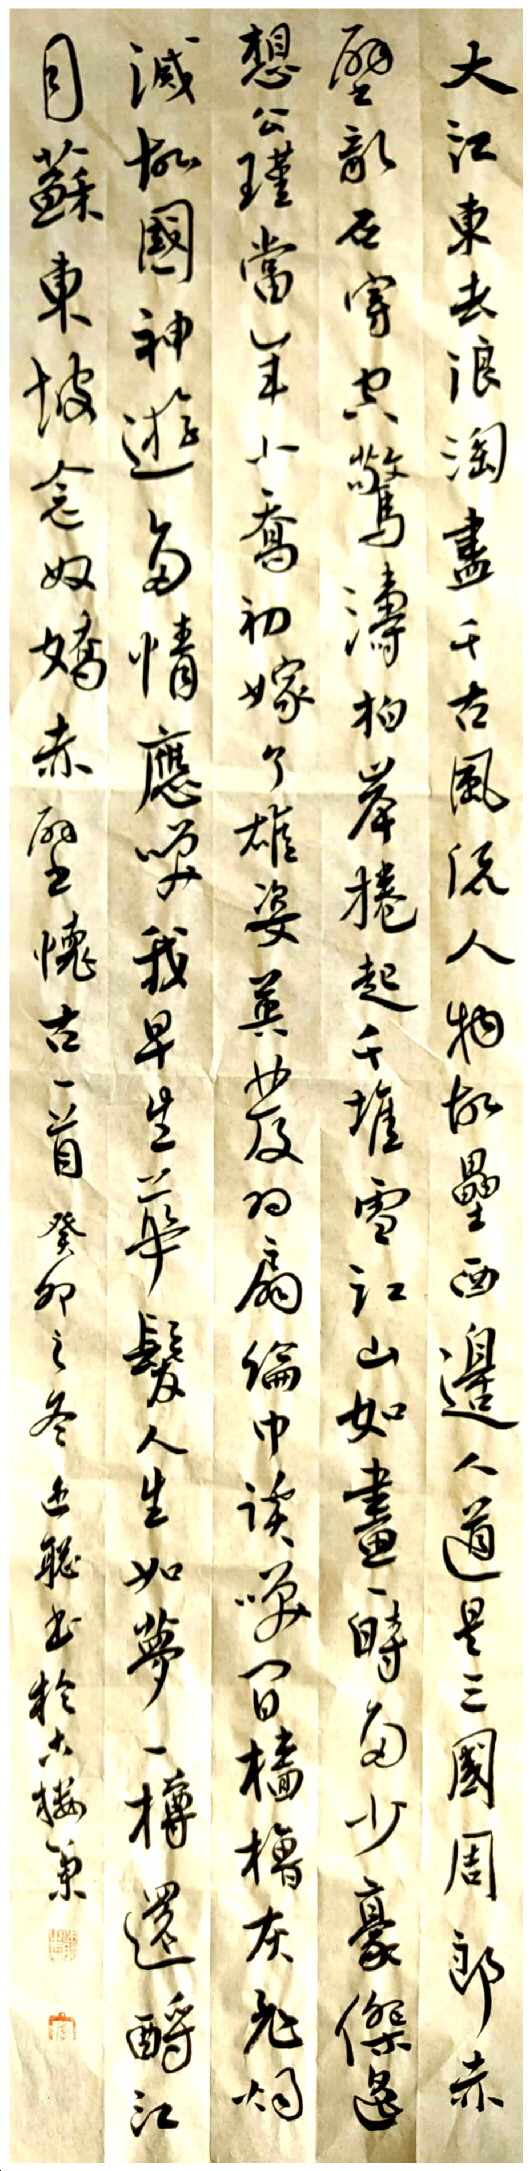 大江東去浪淘盡千古風流人物故壘西邊人道是三國周郎赤
壁亂石穿空驚濤拍岸捲起千堆雪江山如畫一時多少豪傑遙
想公瑾當年小喬初嫁了雄姿英發羽扇綸巾談笑間檣櫓灰飛烟
滅故國神遊多情應笑我早生華髮人生如夢一樽還酹江
月蘇東坡念奴嬌赤壁懷古一首癸卯之冬聰書於